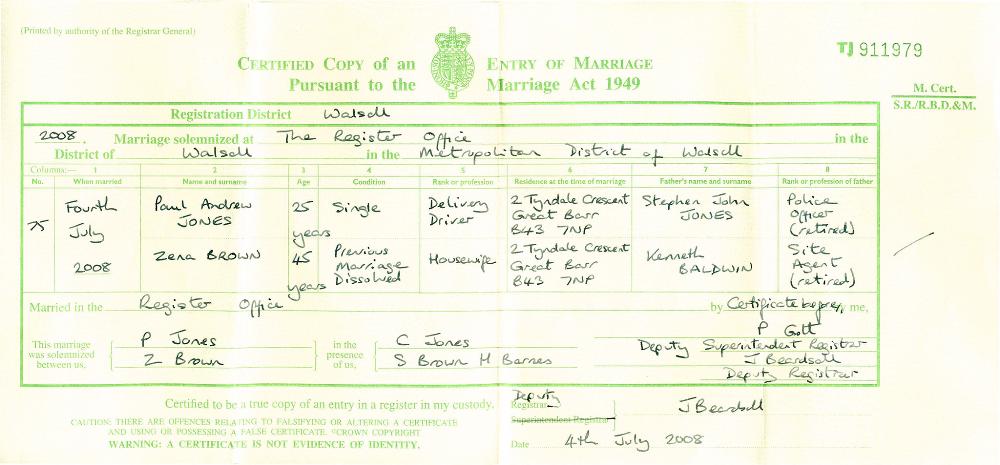 (Printed by authority of the Registrar General)
TJ 911979
CERTIFIED COPY of an ENTRY OF MARRIAGE
Pursuant to the Marriage Act 1949
M. Cert.
S.R./R.B.D.&M.
Registration District Walsall
2008. Marriage solemnized at The Register Office in the
District of Walsall in the Metropolitan District of Walsall
Columns:— 1 2 3 4 5 6 7 8
No. When married Name and surname Age Condition Rank or profession Residence at the time of marriage Father's name and surname Rank or profession of father
75 Fourth July 2008
Paul Andrew JONES 25 years Single Delivery Driver 2 Tyndale Crescent Great Barr B43 7NP Stephen John JONES Police Officer (retired)
Zena BROWN 45 years Previous Marriage Dissolved Housewife 2 Tyndale Crescent Great Barr B43 7NP Kenneth BALDWIN Site Agent (retired)
Married in the Register Office by Certificate before me,
This marriage was solemnized between us,
P Jones
Z Brown
in the presence of us,
C Jones
S Brown H Barnes
P Gott
Deputy Superintendent Registrar
J Beardsall
Deputy Registrar
Certified to be a true copy of an entry in a register in my custody.
CAUTION: THERE ARE OFFENCES RELATING TO FALSIFYING OR ALTERING A CERTIFICATE
AND USING OR POSSESSING A FALSE CERTIFICATE. ©CROWN COPYRIGHT
WARNING: A CERTIFICATE IS NOT EVIDENCE OF IDENTITY.
Deputy
Registrar J Beardsall
Superintendent Registrar
Date 4th July 2008